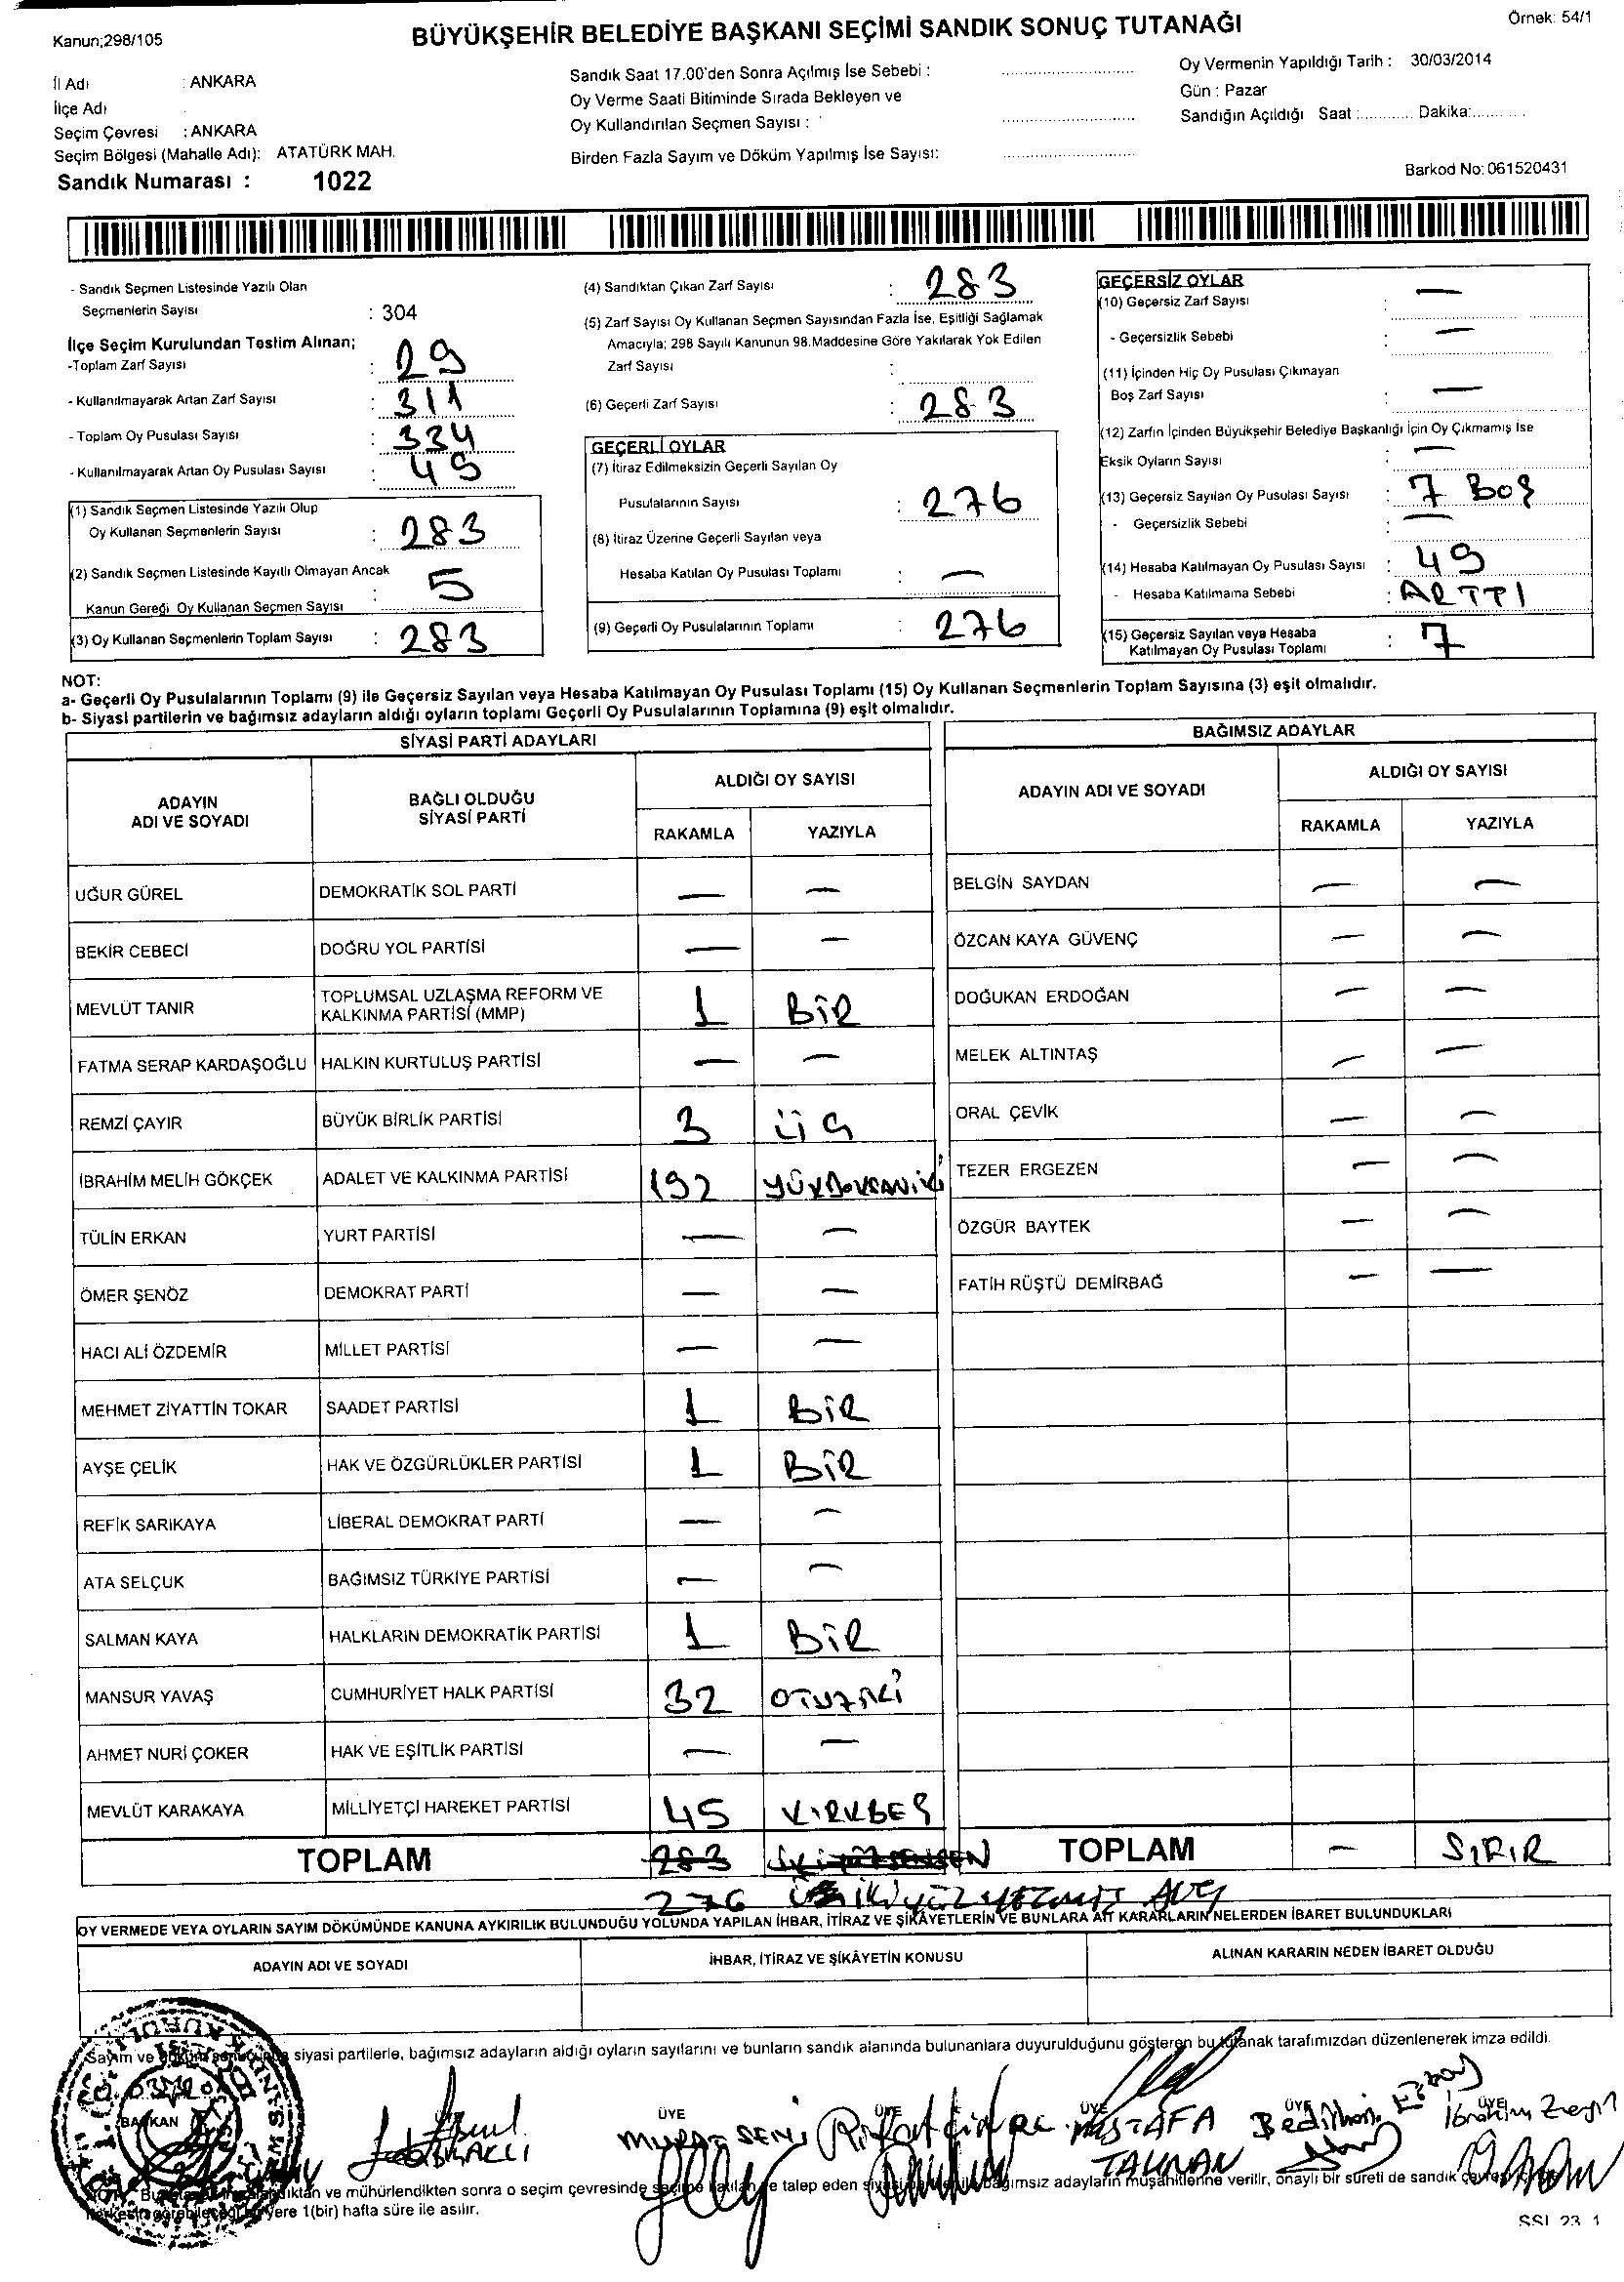 Kanun;298/105
BÜYÜKŞEHİR BELEDİYE BAŞKANI SEÇİMİ SANDIK SONUÇ TUTANAĞI
Örnek: 54/1
İl Adı : ANKARA
İlçe Adı
Seçim Çevresi : ANKARA
Seçim Bölgesi (Mahalle Adı): ATATÜRK MAH.
Sandık Numarası : 1022
Sandık Saat 17.00'den Sonra Açılmış İse Sebebi :
Oy Verme Saati Bitiminde Sırada Bekleyen ve
Oy Kullandırılan Seçmen Sayısı :
Birden Fazla Sayım ve Döküm Yapılmış İse Sayısı:
Oy Vermenin Yapıldığı Tarih : 30/03/2014
Gün : Pazar
Sandığın Açıldığı Saat :............ Dakika:............
Barkod No: 061520431
- Sandık Seçmen Listesinde Yazılı Olan
Seçmenlerin Sayısı : 304
İlçe Seçim Kurulundan Teslim Alınan;
-Toplam Zarf Sayısı : 29
- Kullanılmayarak Artan Zarf Sayısı : 311
- Toplam Oy Pusulası Sayısı : 334
- Kullanılmayarak Artan Oy Pusulası Sayısı : 49
(1) Sandık Seçmen Listesinde Yazılı Olup
Oy Kullanan Seçmenlerin Sayısı : 283
(2) Sandık Seçmen Listesinde Kayıtlı Olmayan Ancak
Kanun Gereği Oy Kullanan Seçmen Sayısı : 5
(3) Oy Kullanan Seçmenlerin Toplam Sayısı : 283
(4) Sandıktan Çıkan Zarf Sayısı : 283
(5) Zarf Sayısı Oy Kullanan Seçmen Sayısından Fazla İse, Eşitliği Sağlamak
Amacıyla; 298 Sayılı Kanunun 98.Maddesine Göre Yakılarak Yok Edilen
Zarf Sayısı :
(6) Geçerli Zarf Sayısı : 283
GEÇERLİ OYLAR
(7) İtiraz Edilmeksizin Geçerli Sayılan Oy
Pusulalarının Sayısı : 276
(8) İtiraz Üzerine Geçerli Sayılan veya
Hesaba Katılan Oy Pusulası Toplamı : —
(9) Geçerli Oy Pusulalarının Toplamı : 276
GEÇERSİZ OYLAR
(10) Geçersiz Zarf Sayısı : —
- Geçersizlik Sebebi : —
(11) İçinden Hiç Oy Pusulası Çıkmayan
Boş Zarf Sayısı : —
(12) Zarfın İçinden Büyükşehir Belediye Başkanlığı İçin Oy Çıkmamış İse
Eksik Oyların Sayısı : —
(13) Geçersiz Sayılan Oy Pusulası Sayısı : 7 BOŞ
- Geçersizlik Sebebi : —
(14) Hesaba Katılmayan Oy Pusulası Sayısı : 49
- Hesaba Katılmama Sebebi : ARTTI
(15) Geçersiz Sayılan veya Hesaba
Katılmayan Oy Pusulası Toplamı : 7
NOT:
a- Geçerli Oy Pusulalarının Toplamı (9) ile Geçersiz Sayılan veya Hesaba Katılmayan Oy Pusulası Toplamı (15) Oy Kullanan Seçmenlerin Toplam Sayısına (3) eşit olmalıdır.
b- Siyasi partilerin ve bağımsız adayların aldığı oyların toplamı Geçerli Oy Pusulalarının Toplamına (9) eşit olmalıdır.
SİYASİ PARTİ ADAYLARI
ADAYIN ADI VE SOYADI
BAĞLI OLDUĞU SİYASİ PARTİ
ALDIĞI OY SAYISI
RAKAMLA YAZIYLA
UĞUR GÜREL DEMOKRATİK SOL PARTİ — —
BEKİR CEBECİ DOĞRU YOL PARTİSİ — —
MEVLÜT TANIR TOPLUMSAL UZLAŞMA REFORM VE KALKINMA PARTİSİ (MMP) 1 BİR
FATMA SERAP KARDAŞOĞLU HALKIN KURTULUŞ PARTİSİ — —
REMZİ ÇAYIR BÜYÜK BİRLİK PARTİSİ 3 ÜÇ
İBRAHİM MELİH GÖKÇEK ADALET VE KALKINMA PARTİSİ 192 YÜZDOKSANİKİ
TÜLİN ERKAN YURT PARTİSİ — —
ÖMER ŞENÖZ DEMOKRAT PARTİ — —
HACI ALİ ÖZDEMİR MİLLET PARTİSİ — —
MEHMET ZİYATTİN TOKAR SAADET PARTİSİ 1 BİR
AYŞE ÇELİK HAK VE ÖZGÜRLÜKLER PARTİSİ 1 BİR
REFİK SARIKAYA LİBERAL DEMOKRAT PARTİ — —
ATA SELÇUK BAĞIMSIZ TÜRKİYE PARTİSİ — —
SALMAN KAYA HALKLARIN DEMOKRATİK PARTİSİ 1 BİR
MANSUR YAVAŞ CUMHURİYET HALK PARTİSİ 32 OTUZİKİ
AHMET NURİ ÇOKER HAK VE EŞİTLİK PARTİSİ — —
MEVLÜT KARAKAYA MİLLİYETÇİ HAREKET PARTİSİ 45 KIRKBEŞ
TOPLAM 283
276 İKİYÜZYETMİŞ ALTI
BAĞIMSIZ ADAYLAR
ADAYIN ADI VE SOYADI
ALDIĞI OY SAYISI
RAKAMLA YAZIYLA
BELGİN SAYDAN — —
ÖZCAN KAYA GÜVENÇ — —
DOĞUKAN ERDOĞAN — —
MELEK ALTINTAŞ — —
ORAL ÇEVİK — —
TEZER ERGEZEN — —
ÖZGÜR BAYTEK — —
FATİH RÜŞTÜ DEMİRBAĞ — —
TOPLAM — SIFIR
OY VERMEDE VEYA OYLARIN SAYIM DÖKÜMÜNDE KANUNA AYKIRILIK BULUNDUĞU YOLUNDA YAPILAN İHBAR, İTİRAZ VE ŞİKÂYETLERİN VE BUNLARA AİT KARARLARIN NELERDEN İBARET BULUNDUKLARI
ADAYIN ADI VE SOYADI
İHBAR, İTİRAZ VE ŞİKÂYETİN KONUSU
ALINAN KARARIN NEDEN İBARET OLDUĞU
Sayım ve siyasi partilerle, bağımsız adayların aldığı oyların sayılarını ve bunların sandık alanında bulunanlara duyurulduğunu gösteren bu tutanak tarafımızdan düzenlenerek imza edildi.
BAŞKAN ÜYE ÜYE ÜYE ÜYE
MURAT MUSTAFA İbrahim
ve mühürlendikten sonra o seçim çevresinde seçime katılan ve talep eden bağımsız adayların müşahitlerine verilir, onaylı bir sureti de sandık
yere 1(bir) hafta süre ile asılır.